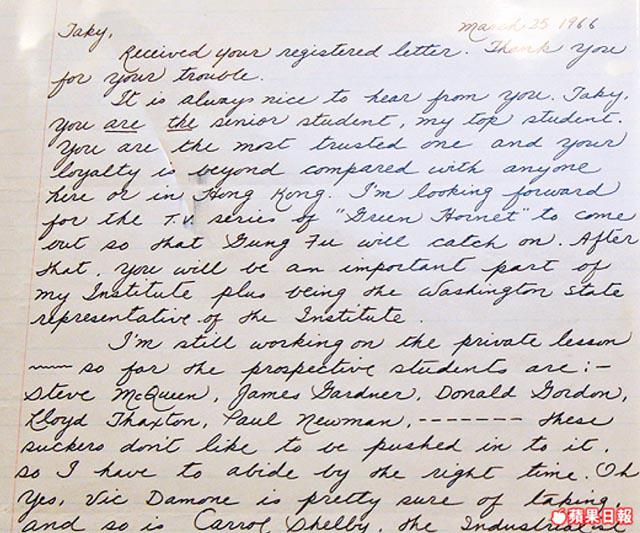 March 25 1966
Taky,
Received your registered letter. Thank you
for your trouble.
It is always nice to hear from you. Taky,
you are the senior student, my top student.
You are the most trusted one and your
loyalty is beyond compared with anyone
here or in Hong Kong. I'm looking forward
for the T.V. series of "Green Hornet" to come
out so that Gung Fu will catch on. After
that, you will be an important part of
my Institute plus being the Washington State
representative of the Institute.
I'm still working on the private lesson
—— so far the prospective students are :-
Steve McQueen, James Gardner, Donald Gordon,
Lloyd Thaxton, Paul Newman, ------- these
suckers don't like to be pushed in to it,
so I have to abide by the right time. Oh
Yes, Vic Damone is pretty sure of taking,
and so is Carrol Shelby, the Industrialist
蘋果日報